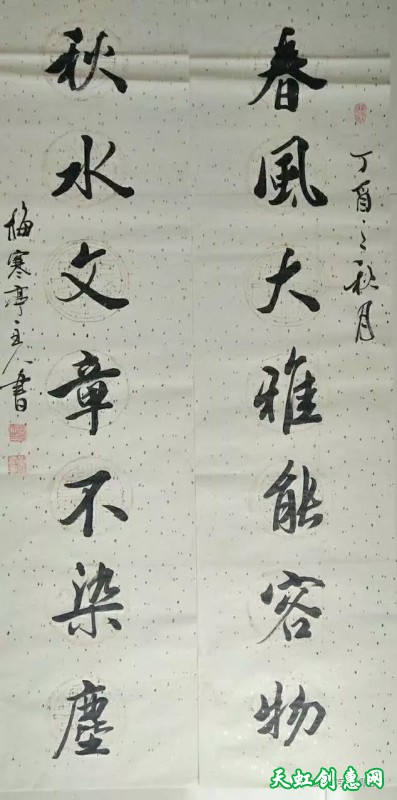 春風大雅能容物
丁酉之秋月
秋水文章不染塵
梅寒亭主人書
天虹创惠网